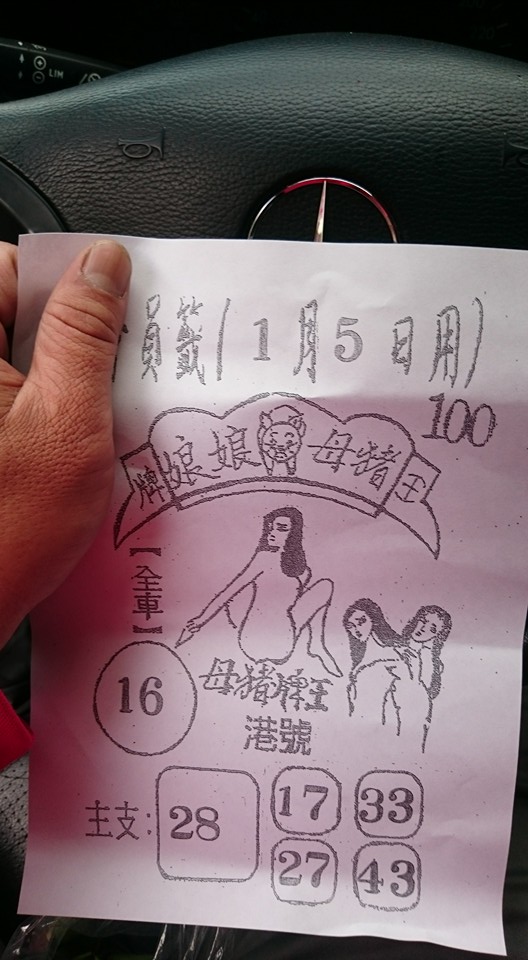 員籤(1月5日用)
100
牌娘娘母豬王
【全車】
16
母豬牌王
港號
主支: 28 17 33
27 43
LIM